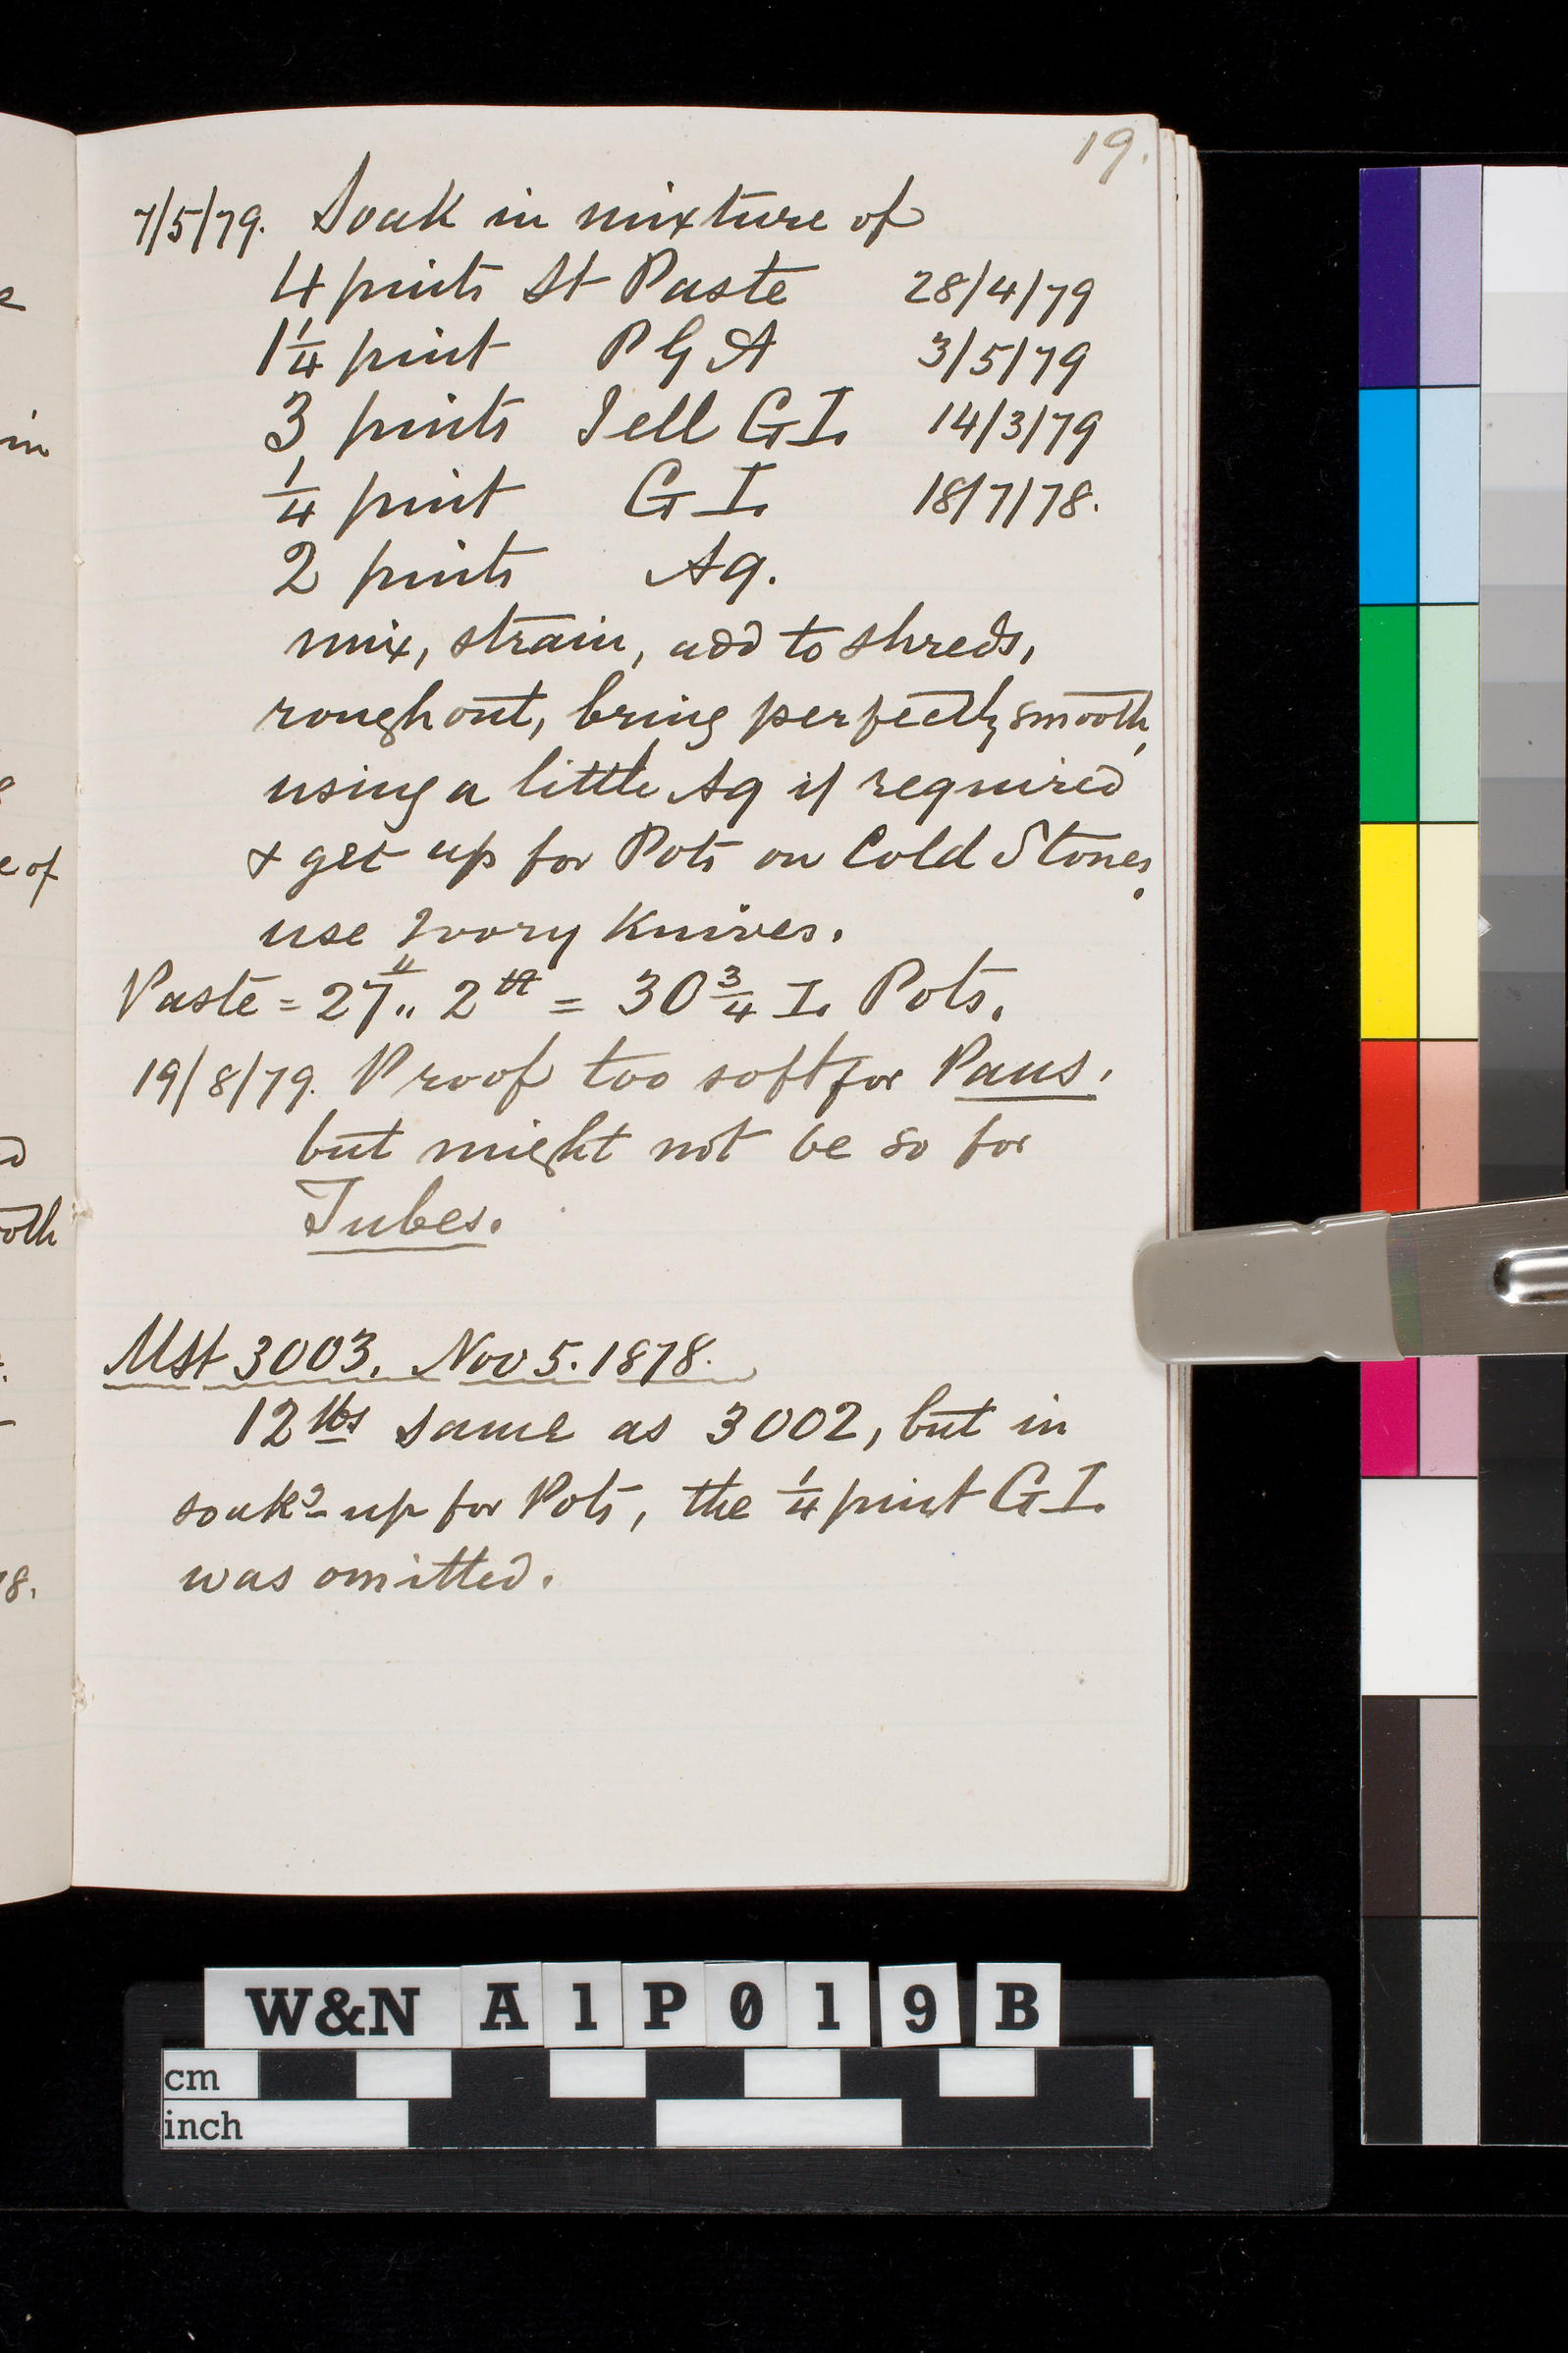 19.
7/5/79. Soak in mixture of
4 pints St Paste 28/4/79
1 1/4 pint P G A 3/5/79
3 pints Jell GI. 14/3/79
1/4 pint G I. 18/7/78.
2 pints Aq.
mix, strain, add to shreds,
rough out, bring perfectly smooth,
using a little Aq if required
& get up for Pots on Cold Stones,
use Ivory Knives.
Paste = 27 " 2 = 30 3/4 I. Pots.
19/8/79. Proof too soft for Pans.
but might not be so for
Tubes.
Mst 3003. Nov 5. 1878.
12 lbs same as 3002, but in
soakg up for Pots, the 1/4 pint G I.
was omitted.
e
in
e of
d
oth
78.
W&N A1P019B
cm
inch